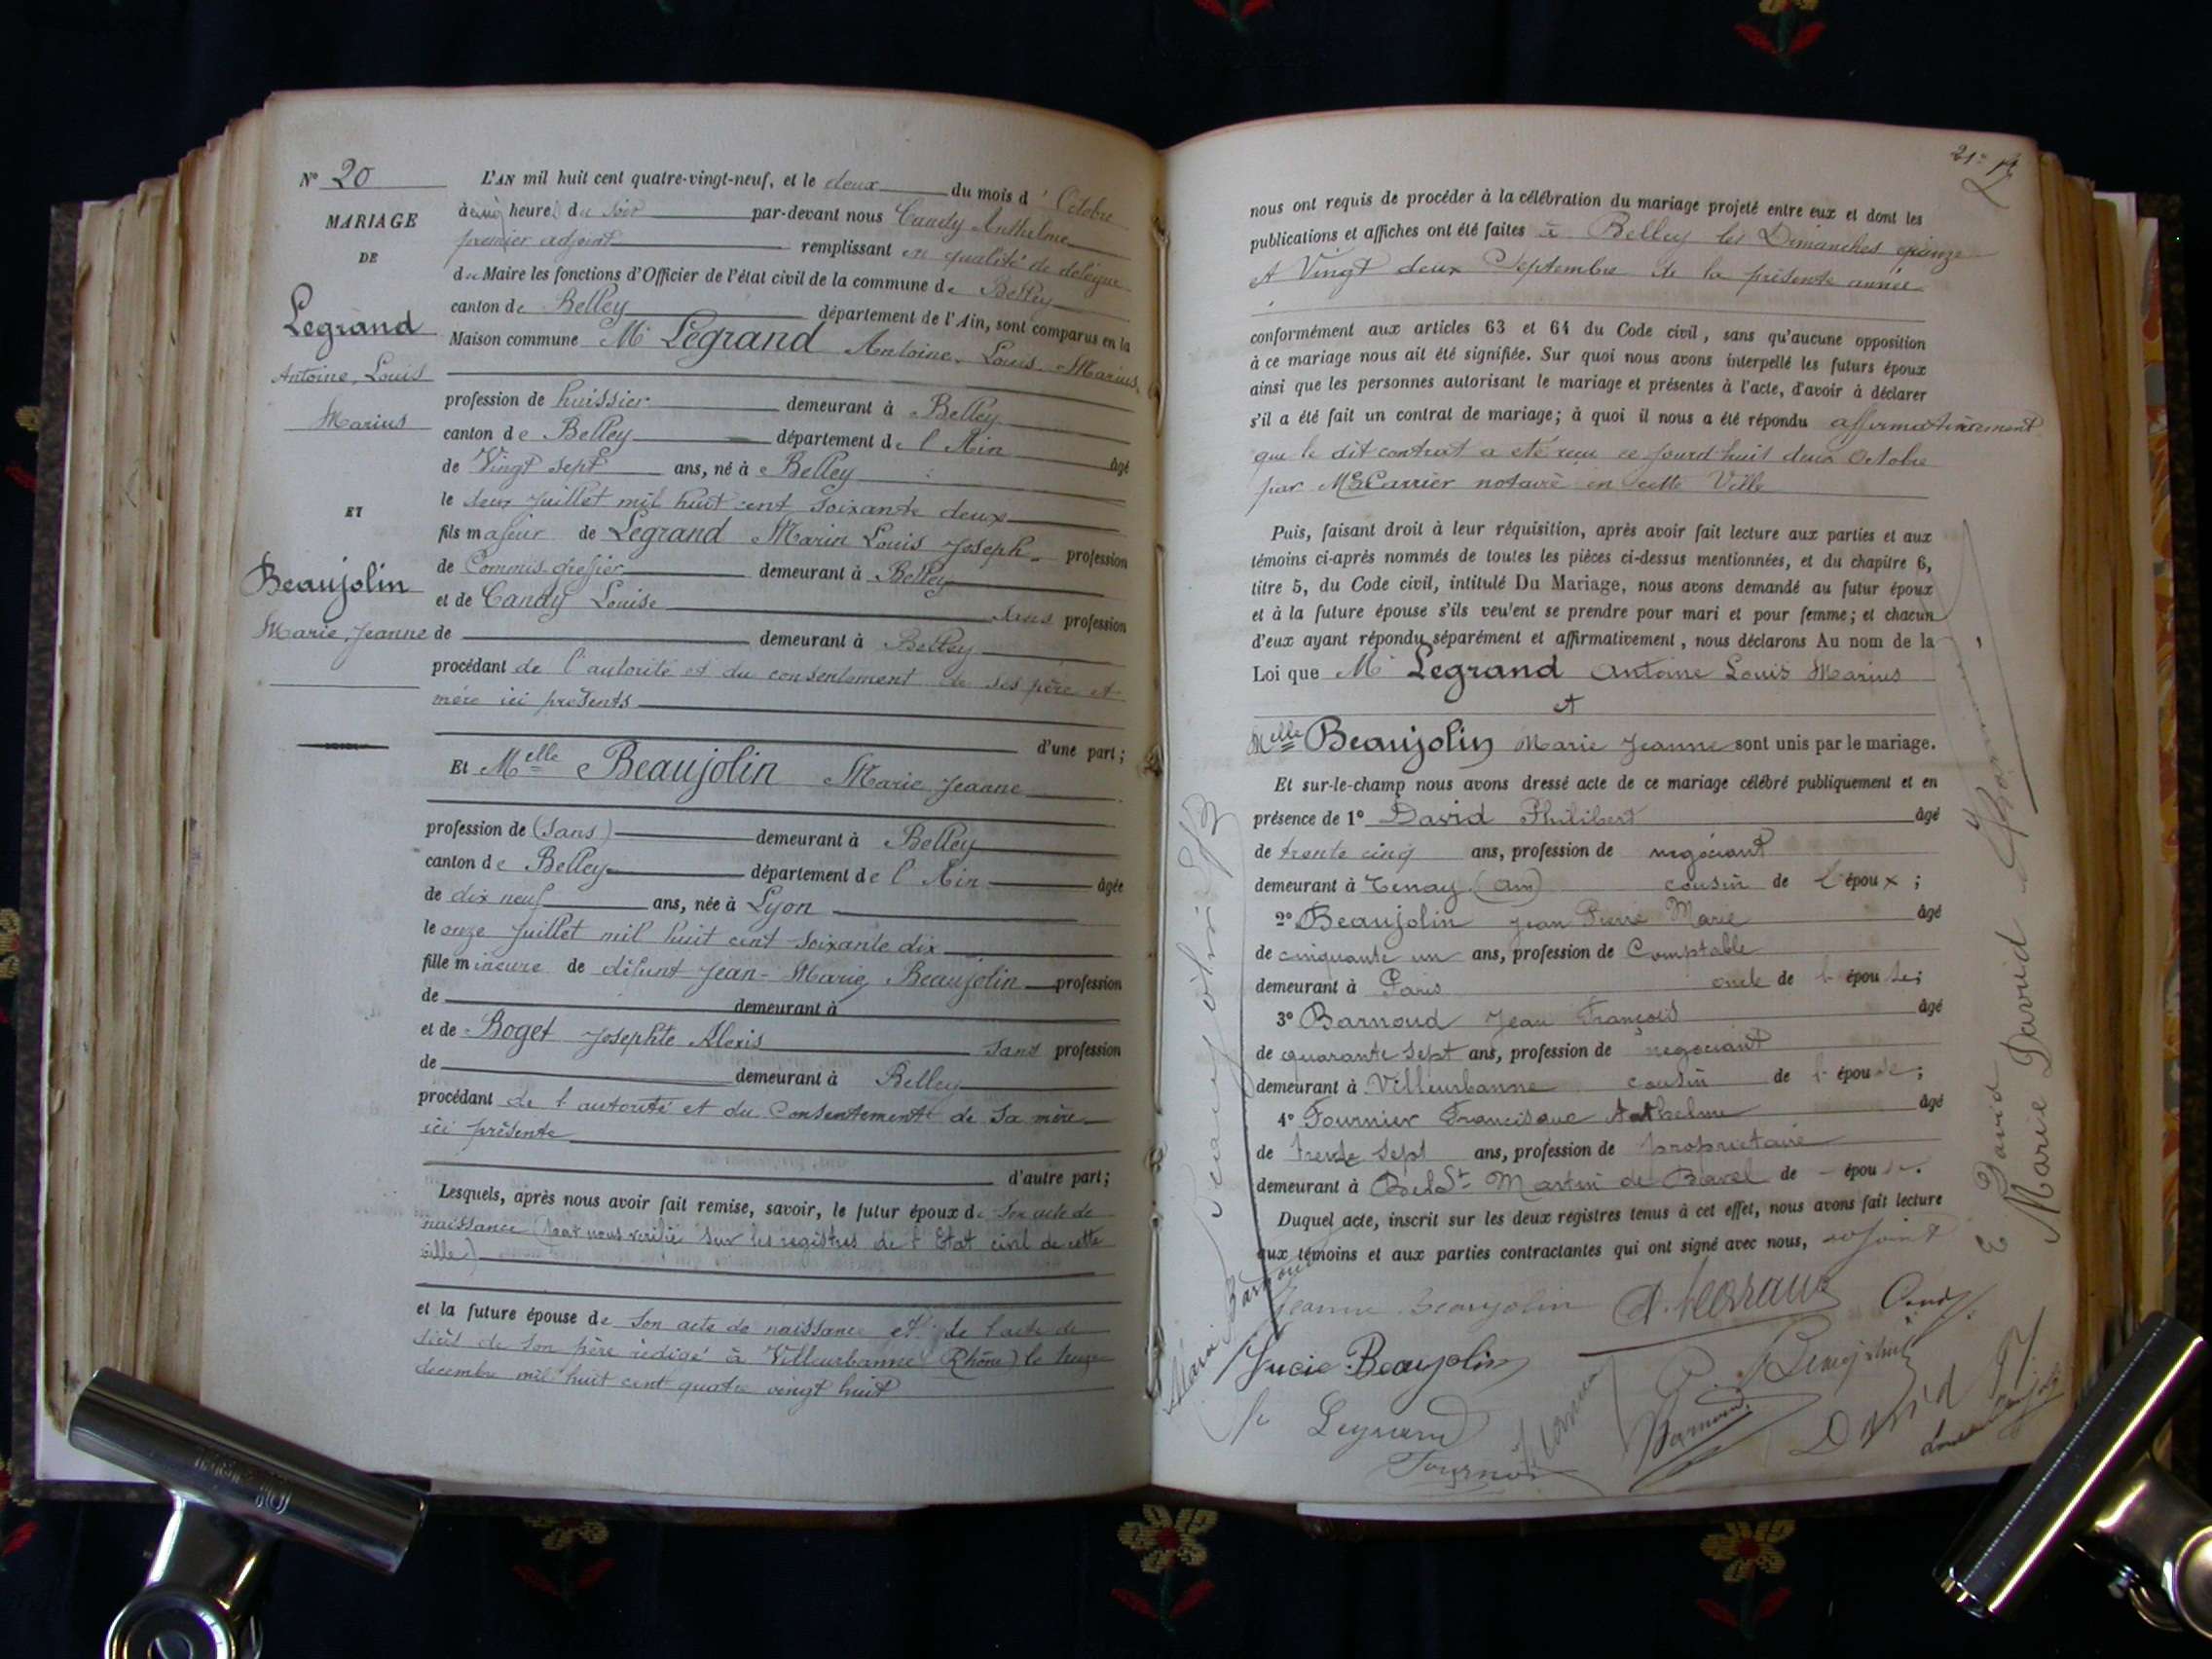 Nº 20
MARIAGE
DE
Legrand
Antoine, Louis
Marius
ET
Beaujolin
Marie, Jeanne
L'AN mil huit cent quatre-vingt-neuf, et le deux du mois d' Octobre
à cinq heures du soir par-devant nous Candy Anthelme
premier adjoint remplissant en qualité de délégué
du Maire les fonctions d'Officier de l'état civil de la commune de Belley
canton de Belley département de l'Ain, sont comparus en la
Maison commune Mr Legrand Antoine, Louis, Marius,
profession de huissier demeurant à Belley
canton de Belley département de l'Ain âgé
de Vingt sept ans, né à Belley
le deux Juillet mil huit cent soixante deux
fils majeur de Legrand Marin Louis Joseph profession
de Commis greffier demeurant à Belley
et de Candy Louise sans profession
de demeurant à Belley
procédant de l'autorité et du consentement de ses père et
mère ici présents
d'une part;
Et Melle Beaujolin Marie, Jeanne
profession de (sans) demeurant à Belley
canton de Belley département de l'Ain âgée
de dix neuf ans, née à Lyon
le onze Juillet mil huit cent soixante dix
fille mineure de défunt Jean-Marie Beaujolin profession
de demeurant à
et de Boget Josephte Alexis sans profession
de demeurant à Belley
procédant de l'autorité et du Consentement de sa mère
ici présente
d'autre part;
Lesquels, après nous avoir fait remise, savoir, le futur époux de son acte de
naissance (par nous vérifié sur les registres de l'Etat civil de cette
ville)
et la future épouse de son acte de naissance et de l'acte de
décès de son père rédigé à Villeurbanne (Rhône) le
decembre mil huit cent quatre vingt huit
21
nous ont requis de procéder à la célébration du mariage projeté entre eux et dont les
publications et affiches ont été faites à Belley les Dimanches quinze
et Vingt deux Septembre de la présente année
conformément aux articles 63 et 64 du Code civil, sans qu'aucune opposition
à ce mariage nous ait été signifiée. Sur quoi nous avons interpellé les futurs époux
ainsi que les personnes autorisant le mariage et présentes à l'acte, d'avoir à déclarer
s'il a été fait un contrat de mariage; à quoi il nous a été répondu affirmativement
que le dit contrat a été reçu ce jourd'huit deux Octobre
par Carrier notaire en cette Ville
Puis, faisant droit à leur réquisition, après avoir fait lecture aux parties et aux
témoins ci-après nommés de toutes les pièces ci-dessus mentionnées, et du chapitre 6,
titre 5, du Code civil, intitulé Du Mariage, nous avons demandé au futur époux
et à la future épouse s'ils veulent se prendre pour mari et pour femme; et chacun
d'eux ayant répondu séparément et affirmativement, nous déclarons Au nom de la
Loi que Mr Legrand Antoine Louis Marius
et
Melle Beaujolin Marie Jeanne sont unis par le mariage.
Et sur-le-champ nous avons dressé acte de ce mariage célébré publiquement et en
présence de 1º David Philibert âgé
de trente cinq ans, profession de négociant
demeurant à Tenay (Ain) cousin de l'époux;
2º Beaujolin Jean Pierre Marie âgé
de cinquante un ans, profession de Comptable
demeurant à Paris oncle de l'épouse;
3º Barnoud Jean François âgé
de quarante sept ans, profession de négociant
demeurant à Villeurbanne cousin de l'épouse;
4º Fournier Francisque Anthelme âgé
de trente sept ans, profession de propriétaire
demeurant à St Martin de Bavel de épouse.
Duquel acte, inscrit sur les deux registres tenus à cet effet, nous avons fait lecture
aux témoins et aux parties contractantes qui ont signé avec nous, adjoint
Jeanne Beaujolin A. Legrand Candy
Lucie Beaujolin
Legrand
Barnoud
David
Fournier
E David
Marie David